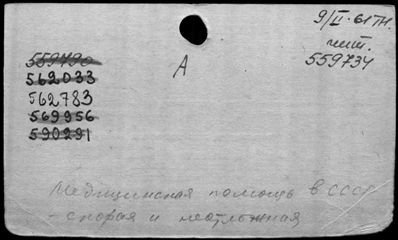 9/II-61 тн.
чит.
559734
А
559790
562033
562783
569956
590291
Медицинская помощь в СССР
- скорая и неотложная